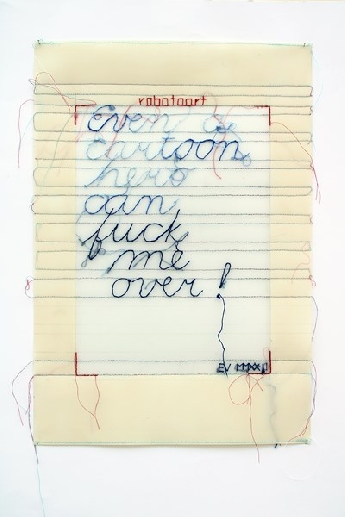 robotaart
Even a
cartoon
hero
can
fuck
me
over!